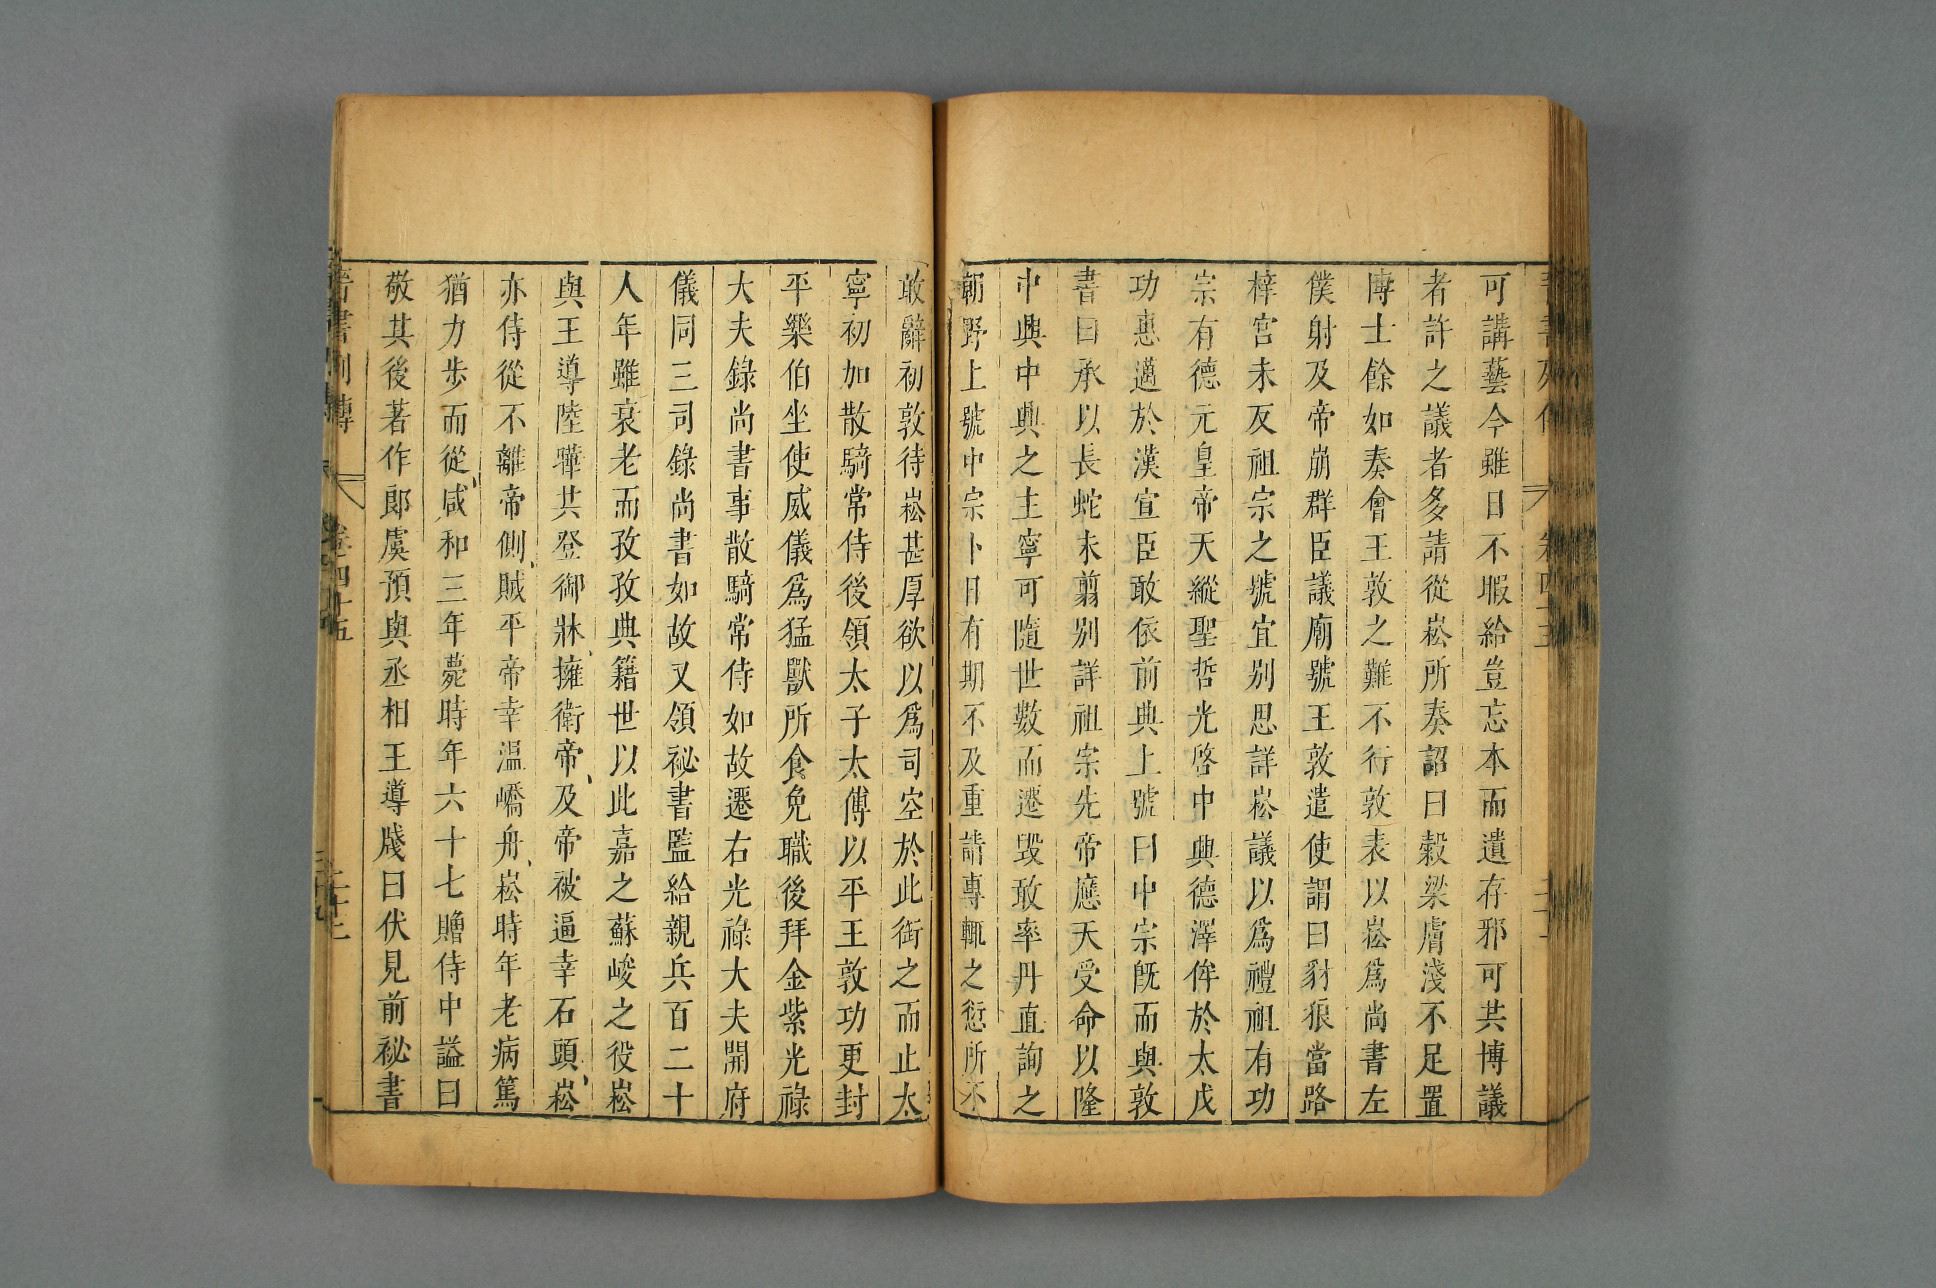 可講藝今雖日不暇給豈忘本而遺存邪可共博議
者許之議者多請從崧所奏詔曰穀梁膚淺不足置
博士餘如奏會王敦之難不行敦表以崧爲尚書左
僕射及帝崩群臣議廟號王敦遣使謂曰豺狼當路
梓宮未反祖宗之號宜别思詳崧議以爲禮祖有功
宗有德元皇帝天縱聖哲光啓中興德澤侔於太戊
功惠邁於漢宣臣敢依前典上號曰中宗旣而與敦
書曰承以長蛇未翦别詳祖宗先帝應天受命以隆
中興中興之主寧可隨世數而遷毀敢率丹直詢之
朝野上號中宗卜日有期不及重請專輒之愆所不
敢辭初敦待崧甚厚欲以爲司空於此銜之而止太
寧初加散騎常侍後領太子太傅以平王敦功更封
平樂伯坐使威儀爲猛獸所食免職後拜金紫光祿
大夫錄尚書事散騎常侍如故遷右光祿大夫開府
儀同三司錄尚書如故又領祕書監給親兵百二十
人年雖衰老而孜孜典籍世以此嘉之蘇峻之役崧
與王導陸曄共登御牀擁衛帝及帝被逼幸石頭崧
亦侍從不離帝側賊平帝幸温嶠舟崧時年老病篤
猶力步而從咸和三年薨時年六十七贈侍中謚曰
敬其後著作郎虞預與丞相王導牋曰伏見前祕書
晋書列傳 卷四十五